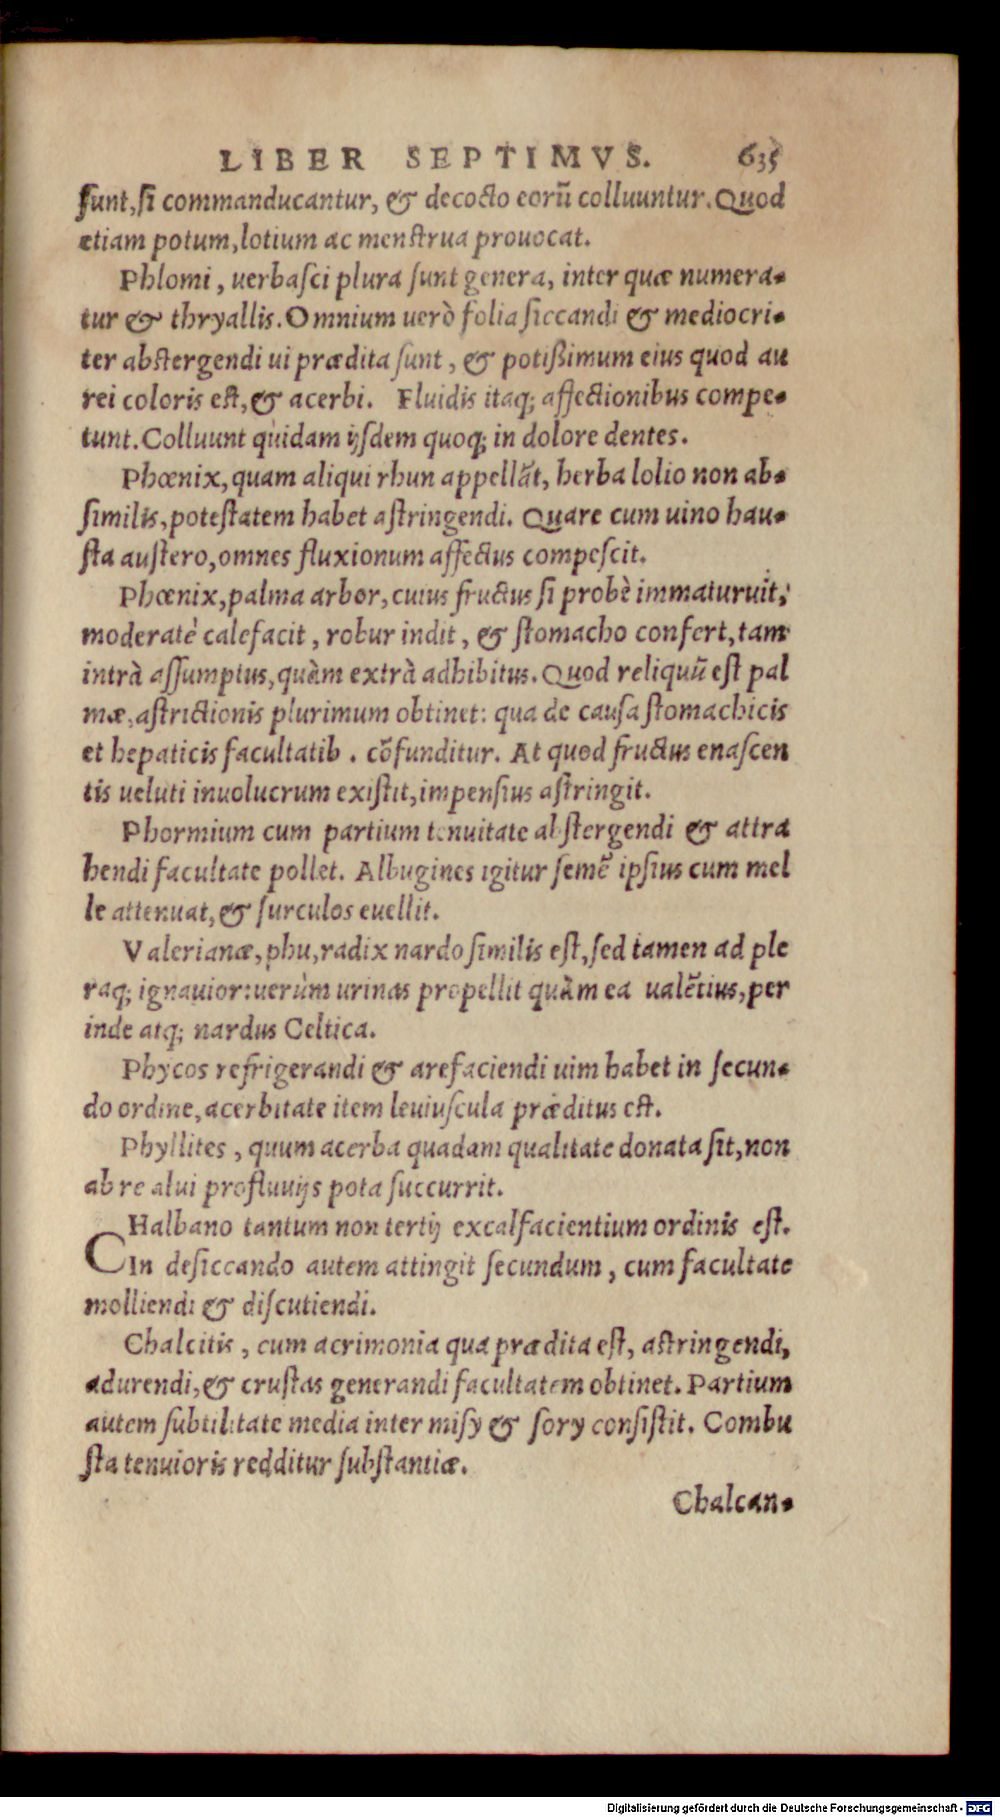 LIBER SEPTIMVS. 635
ſunt, ſi commanducantur, & decocto eorũ colluuntur. Quod
etiam potum, lotium ac menſtrua prouocat.
Phlomi, uerbaſci plura ſunt genera, inter quæ numera-
tur & thryallis. Omnium uerò folia ſiccandi & mediocri-
ter abſtergendi ui prædita ſunt, & potißimum eius quod au
rei coloris eſt, & acerbi. Fluidis itaq; affectionibus compe-
tunt. Colluunt quidam ijſdem quoq; in dolore dentes.
Phœnix, quam aliqui rhun appellãt, herba lolio non ab-
ſimilis, poteſtatem habet aſtringendi. Quare cum uino hau-
ſta auſtero, omnes fluxionum affectus compeſcit.
Phœnix, palma arbor, cuius fructus ſi probè immaturuit,
moderatè calefacit, robur indit, & ſtomacho confert, tam
intrà aſſumptus, quàm extrà adhibitus. Quod reliquũ eſt pal
mæ, aſtrictionis plurimum obtinet: qua de cauſa ſtomachicis
et hepaticis facultatib. cõfunditur. At quod fructus enaſcen
tis ueluti inuolucrum exiſtit, impenſius aſtringit.
Phormium cum partium tenuitate abſtergendi & attra
hendi facultate pollet. Albugines igitur ſemẽ ipſius cum mel
le attenuat, & ſurculos euellit.
Valerianæ, phu, radix nardo ſimilis eſt, ſed tamen ad ple
raq; ignauior: uerùm urinas propellit quàm ea ualẽtius, per
inde atq; nardus Celtica.
Phycos refrigerandi & arefaciendi uim habet in ſecun-
do ordine, acerbitate item leuiuſcula præditus eſt.
Phyllites, quum acerba quadam qualitate donata ſit, non
ab re alui profluuijs pota ſuccurrit.
CHalbano tantum non tertij excalfacientium ordinis eſt.
In deſiccando autem attingit ſecundum, cum facultate
molliendi & diſcutiendi.
Chalcitis, cum acrimonia qua prædita eſt, aſtringendi,
adurendi, & cruſtas generandi facultatem obtinet. Partium
autem ſubtilitate media inter miſy & ſory conſiſtit. Combu
ſta tenuioris redditur ſubſtantiæ.
Chalcan-
Digitalisierung gefördert durch die Deutsche Forschungsgemeinschaft - DFG